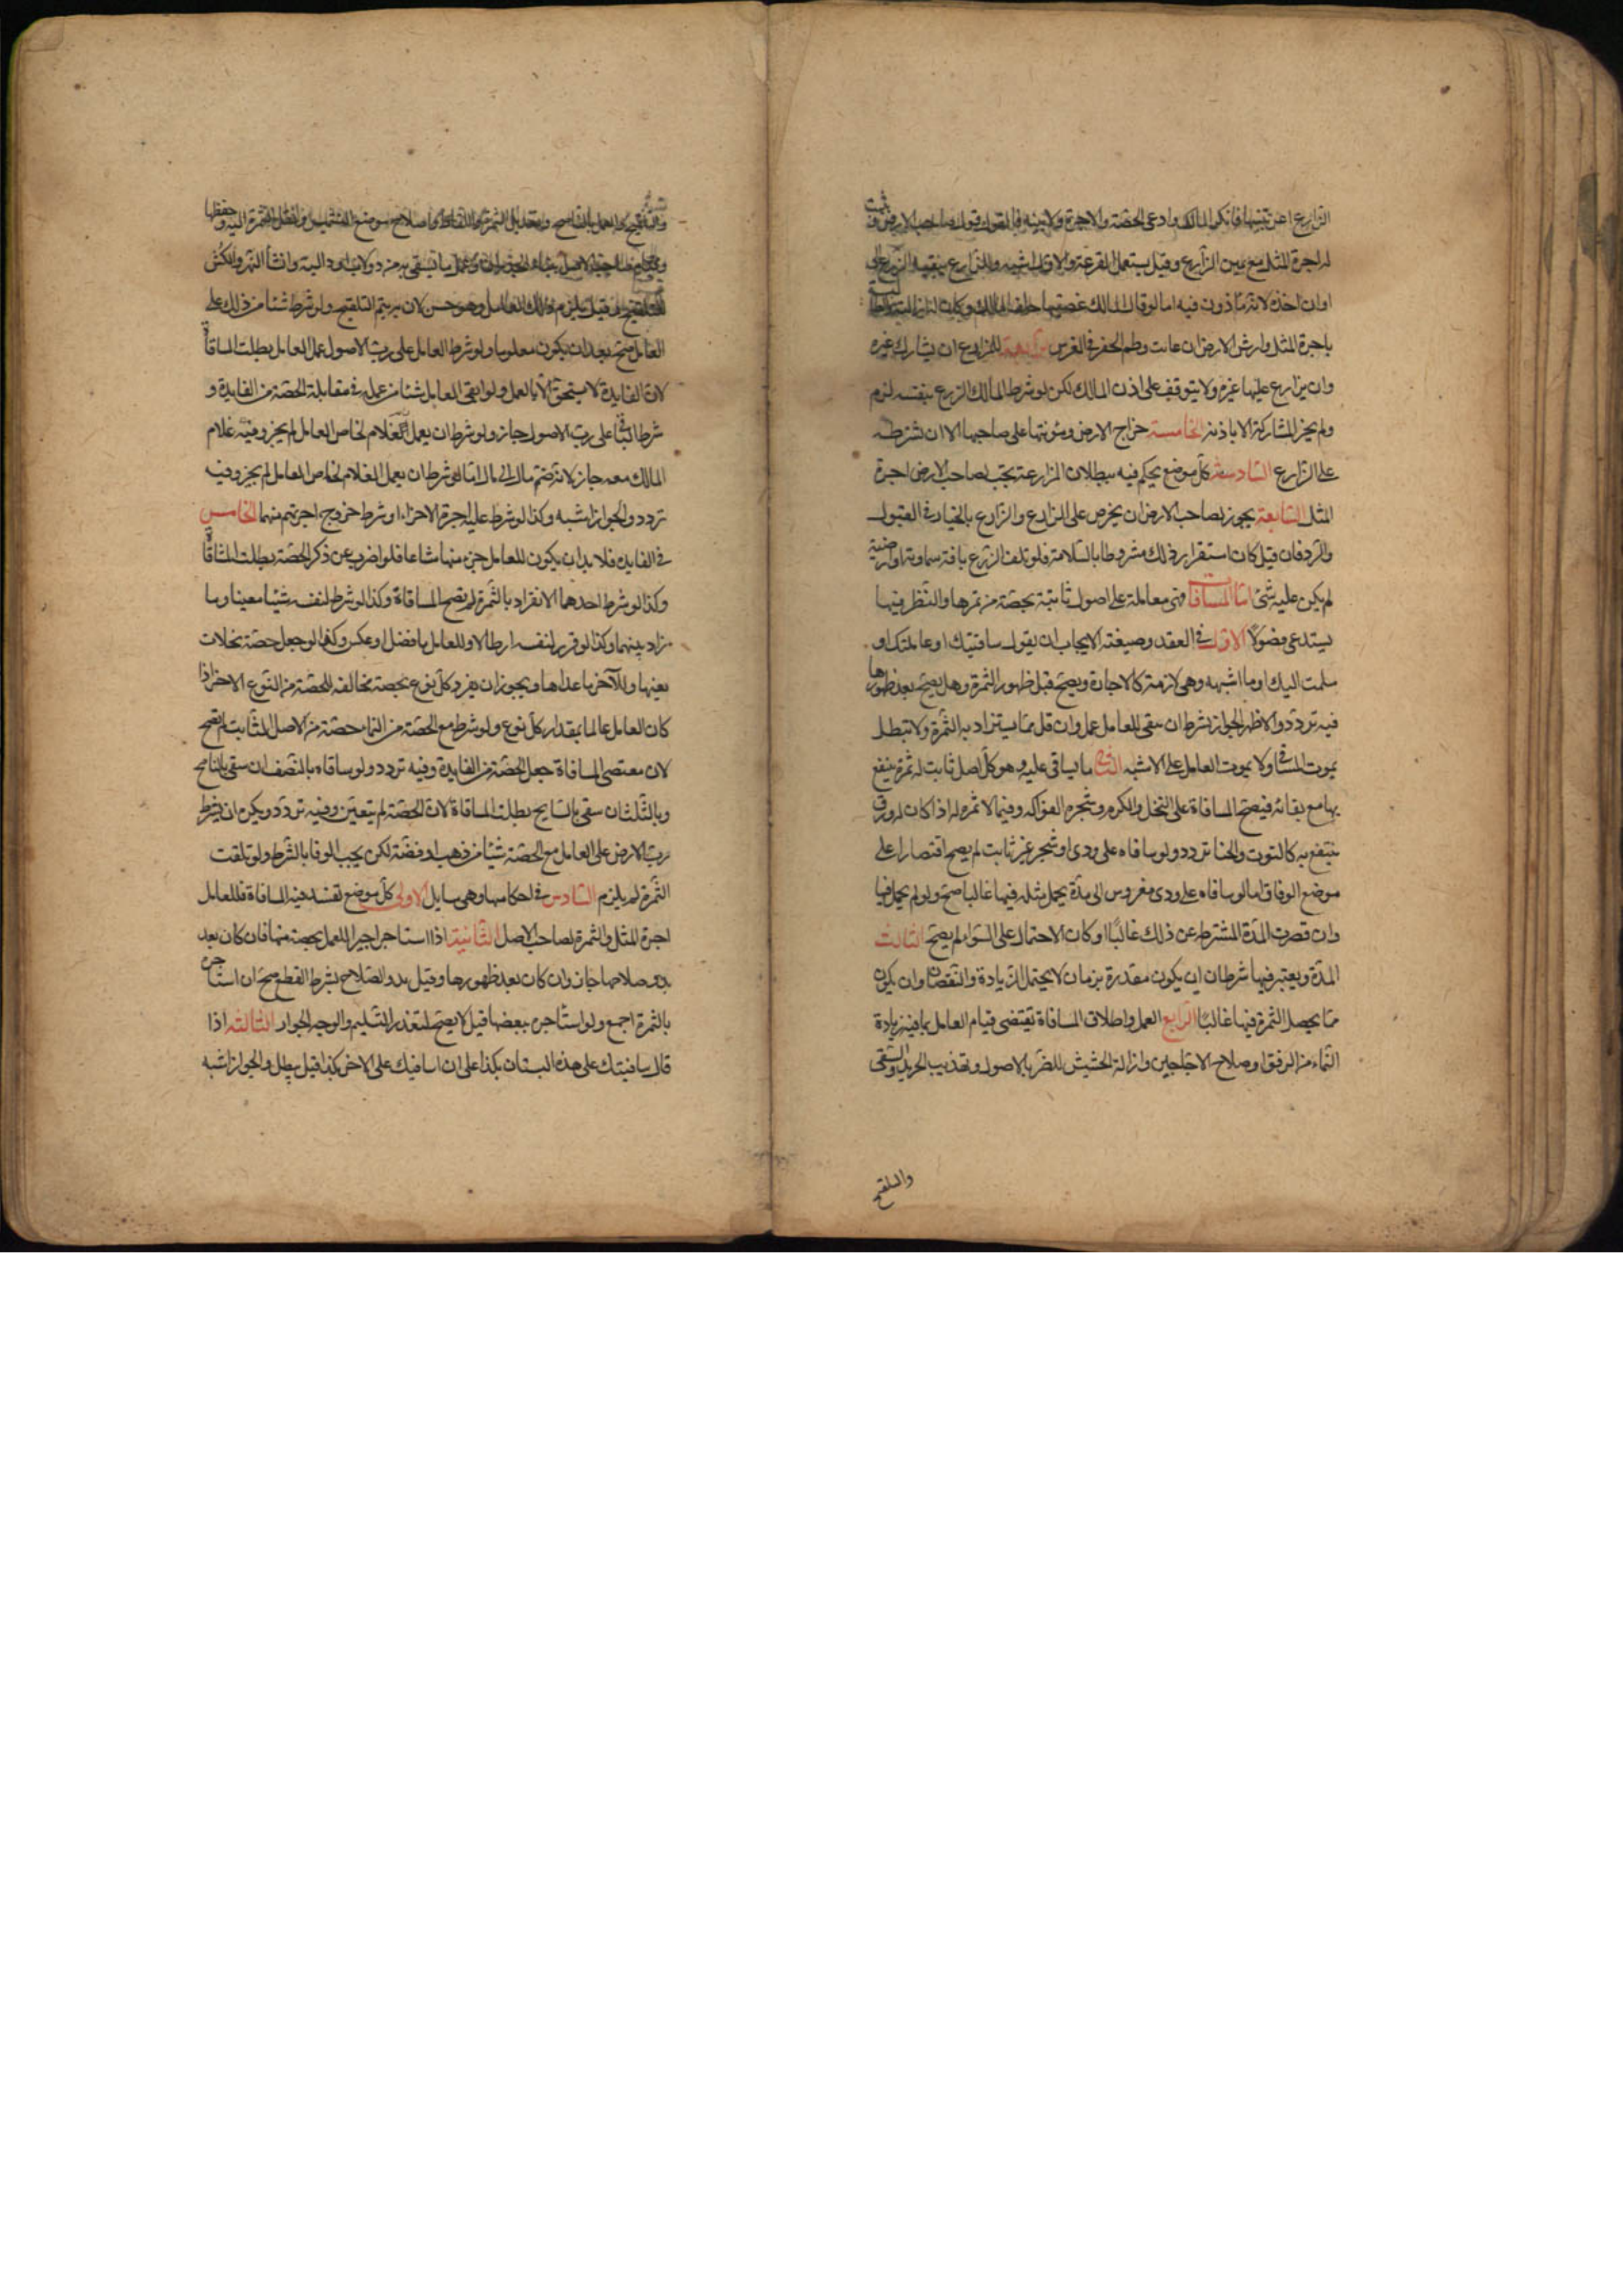 الزارع اعرتنيها فانكر المالك وادعى الحصة والاجرة ولا بينه فالقول قول صاحب الارض وتثبت
له اجرة المثل مع يمين الزارع وقيل يستعمل القرعة والاول اشبه وللزارع تبقيه الزرع الى
اوان اخذه لانه ماذون فيه اما لو قال المالك غصبتها حلف المالك وكان له ازالته والمطالبة
باجرة المثل وارش الارض ان عابت وطم الحفر في الغرس الرابعة للمزارع ان يشارك غيره
وان يزارع عليها غيره ولا يتوقف على اذن المالك لكن لو شرط المالك الزرع بنفسه لزم
ولم يجز المشاركة الا باذنه الخامسة خراج الارض ومئونتها على صاحبها الا ان تشترطه
على الزارع السادسة كل موضع يحكم فيه ببطلان المزارعة يجب لصاحب الارض اجرة
المثل السابعة يجوز لصاحب الارض ان يخرص على الزارع والزارع بالخيار في القبول
والرد فان قبل كان استقرار ذلك مشروطا بالسلامة فلو تلف الزرع بافة سماوية او ارضية
لم يكن عليه شئ اما المساقاة فهى معاملة على اصول ثابتة بحصة من ثمرها والنظر فيها
يستدعى فصولا الاول في العقد وصيغته الايجاب ان يقول ساقيتك او عاملتك او
سلمت اليك او ما اشبهه وهى لازمة كالاجارة ويصح قبل ظهور الثمرة وهل يصح بعد ظهورها
فيه تردد والاظهر الجواز بشرط ان يبقى للعامل عمل وان قل مما يستزاد به الثمرة ولا تبطل
بموت المساقى ولا بموت العامل على الاشبه الثانى ما يساقى عليه وهو كل اصل ثابت له ثمرة ينتفع
بها مع بقائه فيصح المساقاة على النخل والكرم وشجر الفواكه وفيما لا ثمره له اذا كان له ورق
ينتفع به كالتوت والحنا تردد ولو ساقاه على ودى او شجر غير ثابت لم يصح اقتصارا على
موضع الوفاق اما لو ساقاه على ودى مغروس الى مدة يحمل مثله فيها غالبا صح ولو لم يحمل فيها
وان قصرت المدة المشترطة عن ذلك غالبا او كان الاحتمال على السواء لم يصح الثالث
المدة ويعتبر فيها شرطان ان يكون مقدرة بزمان لا يحتمل الزيادة والنقصان وان يكون
مما يحصل الثمرة فيها غالبا الرابع العمل واطلاق المساقاة تقتضى قيام العامل بما فيه زيادة
النماء من الرفق واصلاح الاجاجين وازالة الحشيش المضر بالاصول وتهذيب الجريد والسقى
والتلقيح
والتلقيح والعمل بالناضح وتعديل الثمرة واللقاط واصلاح موضع التشميس ونقل الثمرة اليه وحفظها
وقيام صاحب الاصل ببناء الجدران وعمل ما تسقى به من دولاب او دالية وانشأ النهر والكش
للتلقيح وقيل يلزم ذلك العامل وهو حسن لان به يتم التلقيح ولو شرط شئا من ذلك على
العامل صح بعد ان يكون معلوما ولو شرط العامل على رب الاصول عمل العامل بطلت المساقاة
لان الفايدة لا يستحق الا بالعمل ولو ابقى العامل شئا من عمله في مقابلة الحصة من الفايدة و
شرط الباقى على رب الاصول جاز ولو شرط ان يعمل الغلام لخاص العامل لم يجز وفيه غلام
المالك معه جاز لانه ضم مال الى مال اما لو شرط ان يعمل الغلام لخاص العامل لم يجز وفيه
تردد والجواز اشبه وكذا لو شرط عليه اجرة الاجراء او شرط خروج اجرتهم منهما الخامس
في الفايده فلا بد ان يكون للعامل جزء منها مشاعا فلو اضرب عن ذكر الحصة بطلت المساقاة
وكذا لو شرط احدهما الانفراد بالثمرة لم تصح المساقاة وكذا لو شرط لنفسه شيئا معينا وما
زاد بينهما وكذا لو قرر لنفسه ارطالا وللعامل ما فضل او عكس وكذا لو جعل حصة نخلات
بعينها وللآخر ما عداها ويجوز ان يفرد كل نوع بحصة مخالفه للحصة من النوع الاخر اذا
كان العامل عالما بمقدار كل نوع ولو شرط مع الحصة من النماء حصة من الاصل الثابت لم يصح
لان مقتضى المساقاة جعل الحصة من الفايدة وفيه تردد ولو ساقاه بالنصف ان سقى بالناضح
وبالثلث ان سقى بالسايح بطلت المساقاة لان الحصة لم يتعين وفيه تردد ويكره ان يشرط
رب الارض على العامل مع الحصة شيئا من ذهب او فضة لكن يجب الوفا بالشرط ولو تلفت
الثمرة لم يلزم السادس في احكامها وهى مسايل الاولى كل موضع تفسد فيه المساقاة فللعامل
اجرة المثل والثمرة لصاحب الاصل الثانية اذا استاجر اجيرا للعمل بحصة منها فان كان بعد
بدو صلاحها جاز وان كان بعد ظهورها وقبل بدو الصلاح بشرط القطع صح ان استاجره
بالثمرة اجمع ولو استأجره ببعضها قيل لا يصح لتعذر التسليم والوجه الجواز الثالثة اذا
قال ساقيتك على هذه البستان بكذا على ان اساقيك على الاخر بكذا قيل يبطل والجواز اشبه